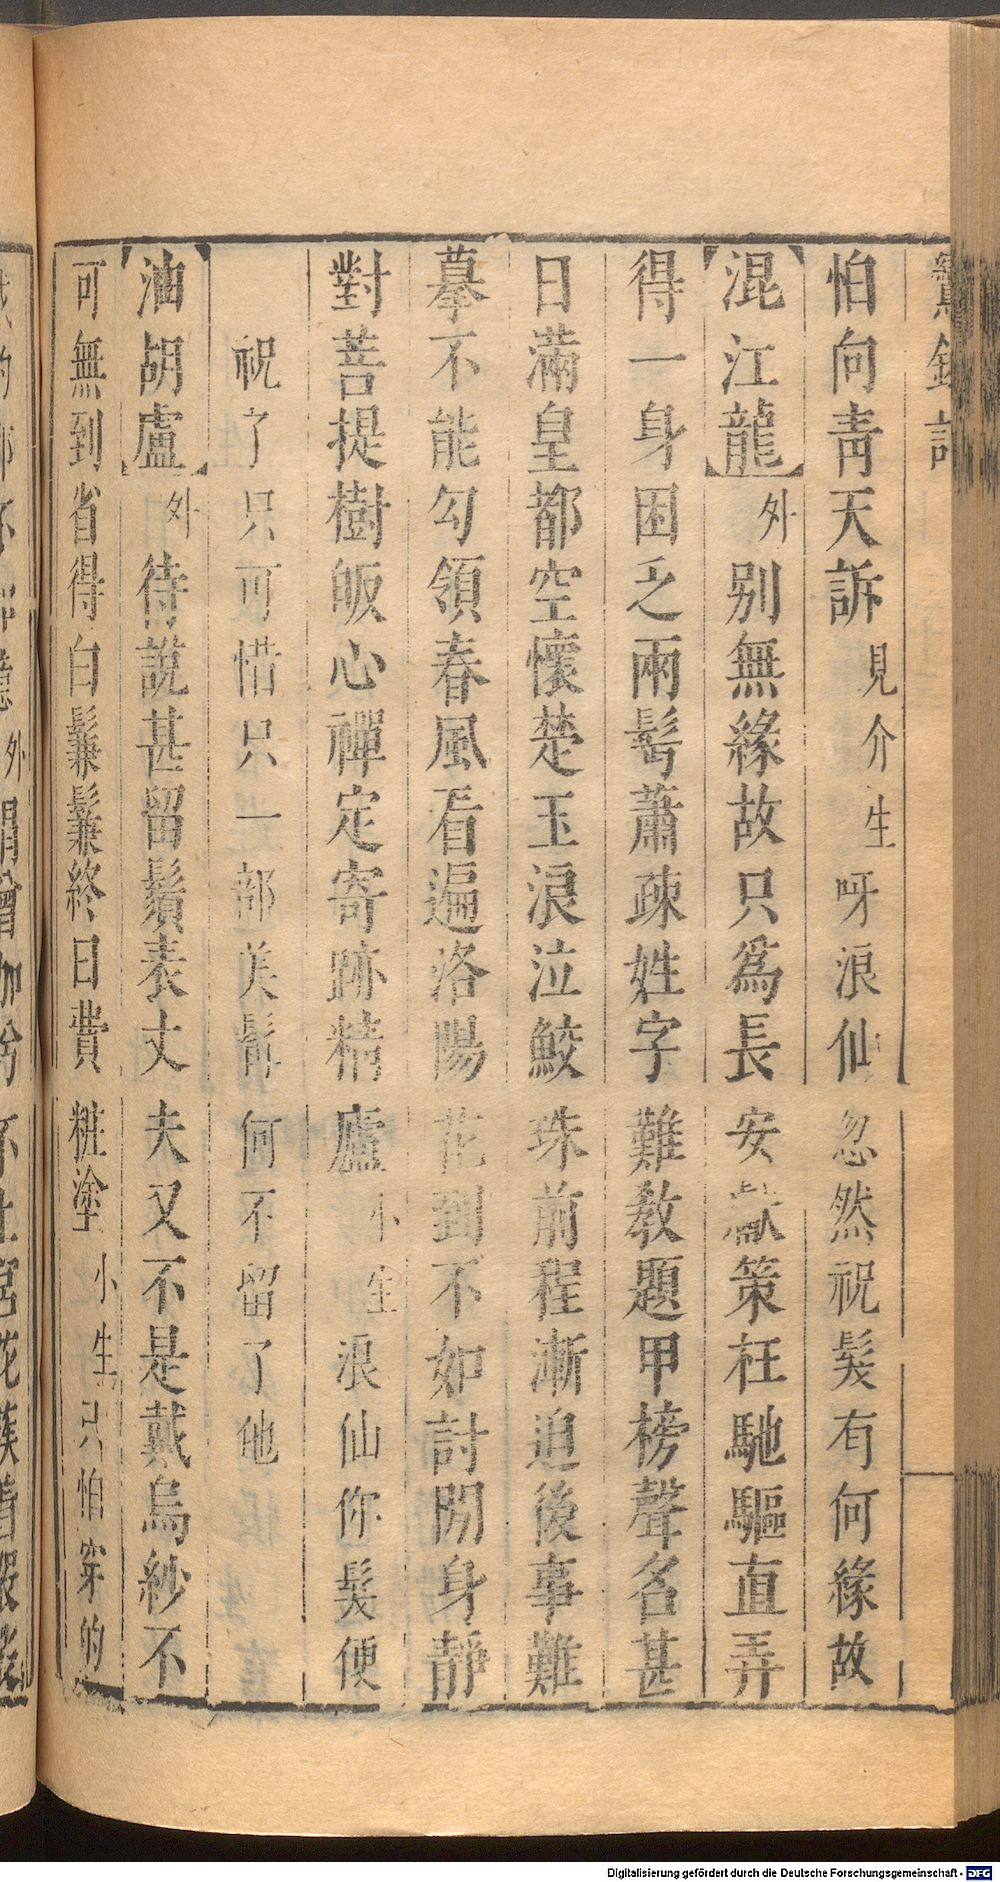 怕向靑天訴見介生呀浪仙忽然祝髮有何緣故
混江龍外別無緣故只爲長安獻策枉馳驅直弄
得一身困乏兩髩蕭疎姓字難敎題甲榜聲名甚
日滿皇都空懷楚玉浪泣鮫珠前程漸迫後事難
摹不能勾領春風看遍洛陽花到不如討閒身靜
對菩提樹皈心禪定寄跡精廬小生浪仙你髮便
祝了只可惜只一部美髯何不留了他
油胡盧外待說甚留鬚表丈夫又不是戴烏紗不
可無到省得白鬑鬑終日費粧塗小生只怕穿的
Digitalisierung gefördert durch die Deutsche Forschungsgemeinschaft - DFG